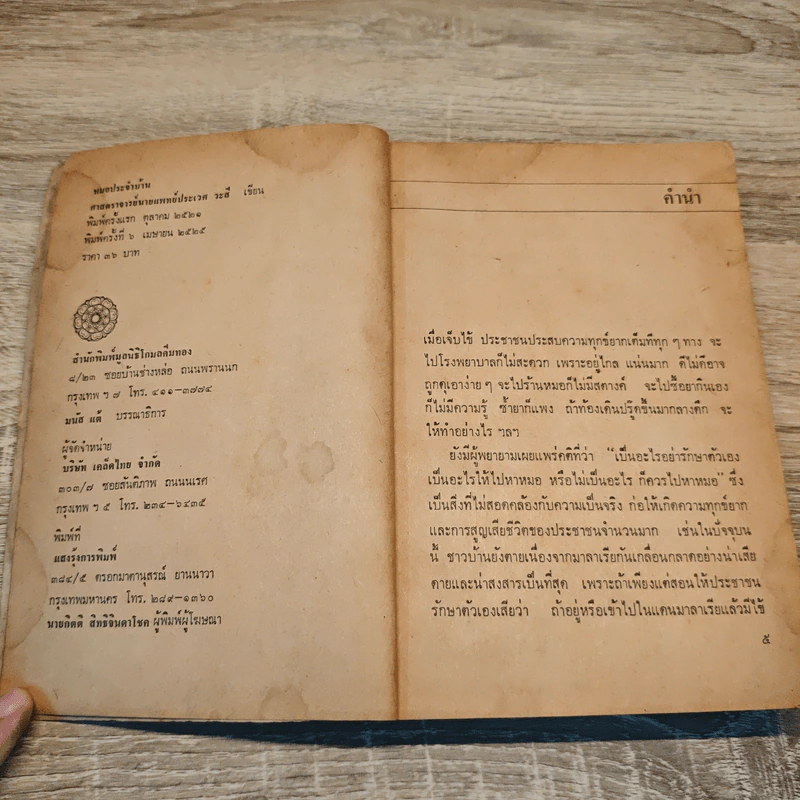 หมอประจำบ้าน
ศาสตราจารย์นายแพทย์ประเวศ วะสี เขียน
พิมพ์ครั้งแรก ตุลาคม ๒๕๒๑
พิมพ์ครั้งที่ ๖ เมษายน ๒๕๒๕
ราคา ๓๖ บาท
สำนักพิมพ์มูลนิธิโกมลคีมทอง
๘/๒๓ ซอยบ้านช่างหล่อ ถนนพรานนก
กรุงเทพ ฯ ๗ โทร. ๔๑๑-๓๗๗๔
มนัส แต้ บรรณาธิการ
ผู้จัดจำหน่าย
บริษัท เคล็ดไทย จำกัด
๓๐๓/๗ ซอยสันติภาพ ถนนนเรศ
กรุงเทพ ฯ ๕ โทร. ๒๓๔-๖๔๓๕
พิมพ์ที่
แสงรุ้งการพิมพ์
๓๘๔/๕ ตรอกมาตานุสรณ์ ยานนาวา
กรุงเทพมหานคร โทร. ๒๘๙-๑๓๖๐
นายกิตติ สิทธิจินดาโชค ผู้พิมพ์ผู้โฆษณา
คำนำ
เมื่อเจ็บไข้ ประชาชนประสบความทุกข์ยากเต็มที่ทุก ๆ ทาง จะ
ไปโรงพยาบาลก็ไม่สะดวก เพราะอยู่ไกล แน่นมาก ดีไม่ดีอาจ
ถูกดุเอาง่าย ๆ จะไปร้านหมอก็ไม่มีสตางค์ จะไปซื้อยากินเอง
ก็ไม่มีความรู้ ซ้ำยาก็แพง ถ้าท้องเดินปรู๊ดขึ้นมากลางดึก จะ
ให้ทำอย่างไร ฯลฯ
ยังมีผู้พยายามเผยแพร่คติที่ว่า "เป็นอะไรอย่ารักษาตัวเอง
เป็นอะไรให้ไปหาหมอ หรือไม่เป็นอะไร ก็ควรไปหาหมอ" ซึ่ง
เป็นสิ่งที่ไม่สอดคล้องกับความเป็นจริง ก่อให้เกิดความทุกข์ยาก
และการสูญเสียชีวิตของประชาชนจำนวนมาก เช่นในปัจจุบัน
นี้ ชาวบ้านยังตายเนื่องจากมาลาเรียกันเกลื่อนกลาดอย่างน่าเสีย
ดายและน่าสงสารเป็นที่สุด เพราะถ้าเพียงแต่สอนให้ประชาชน
รักษาตัวเองเสียว่า ถ้าอยู่หรือเข้าไปในแดนมาลาเรียแล้วมีไข้
๕